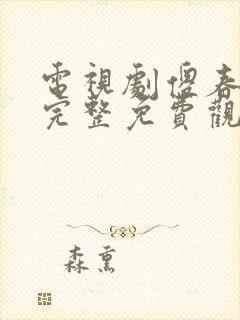 電視劇傻春
完整免費觀
森熏